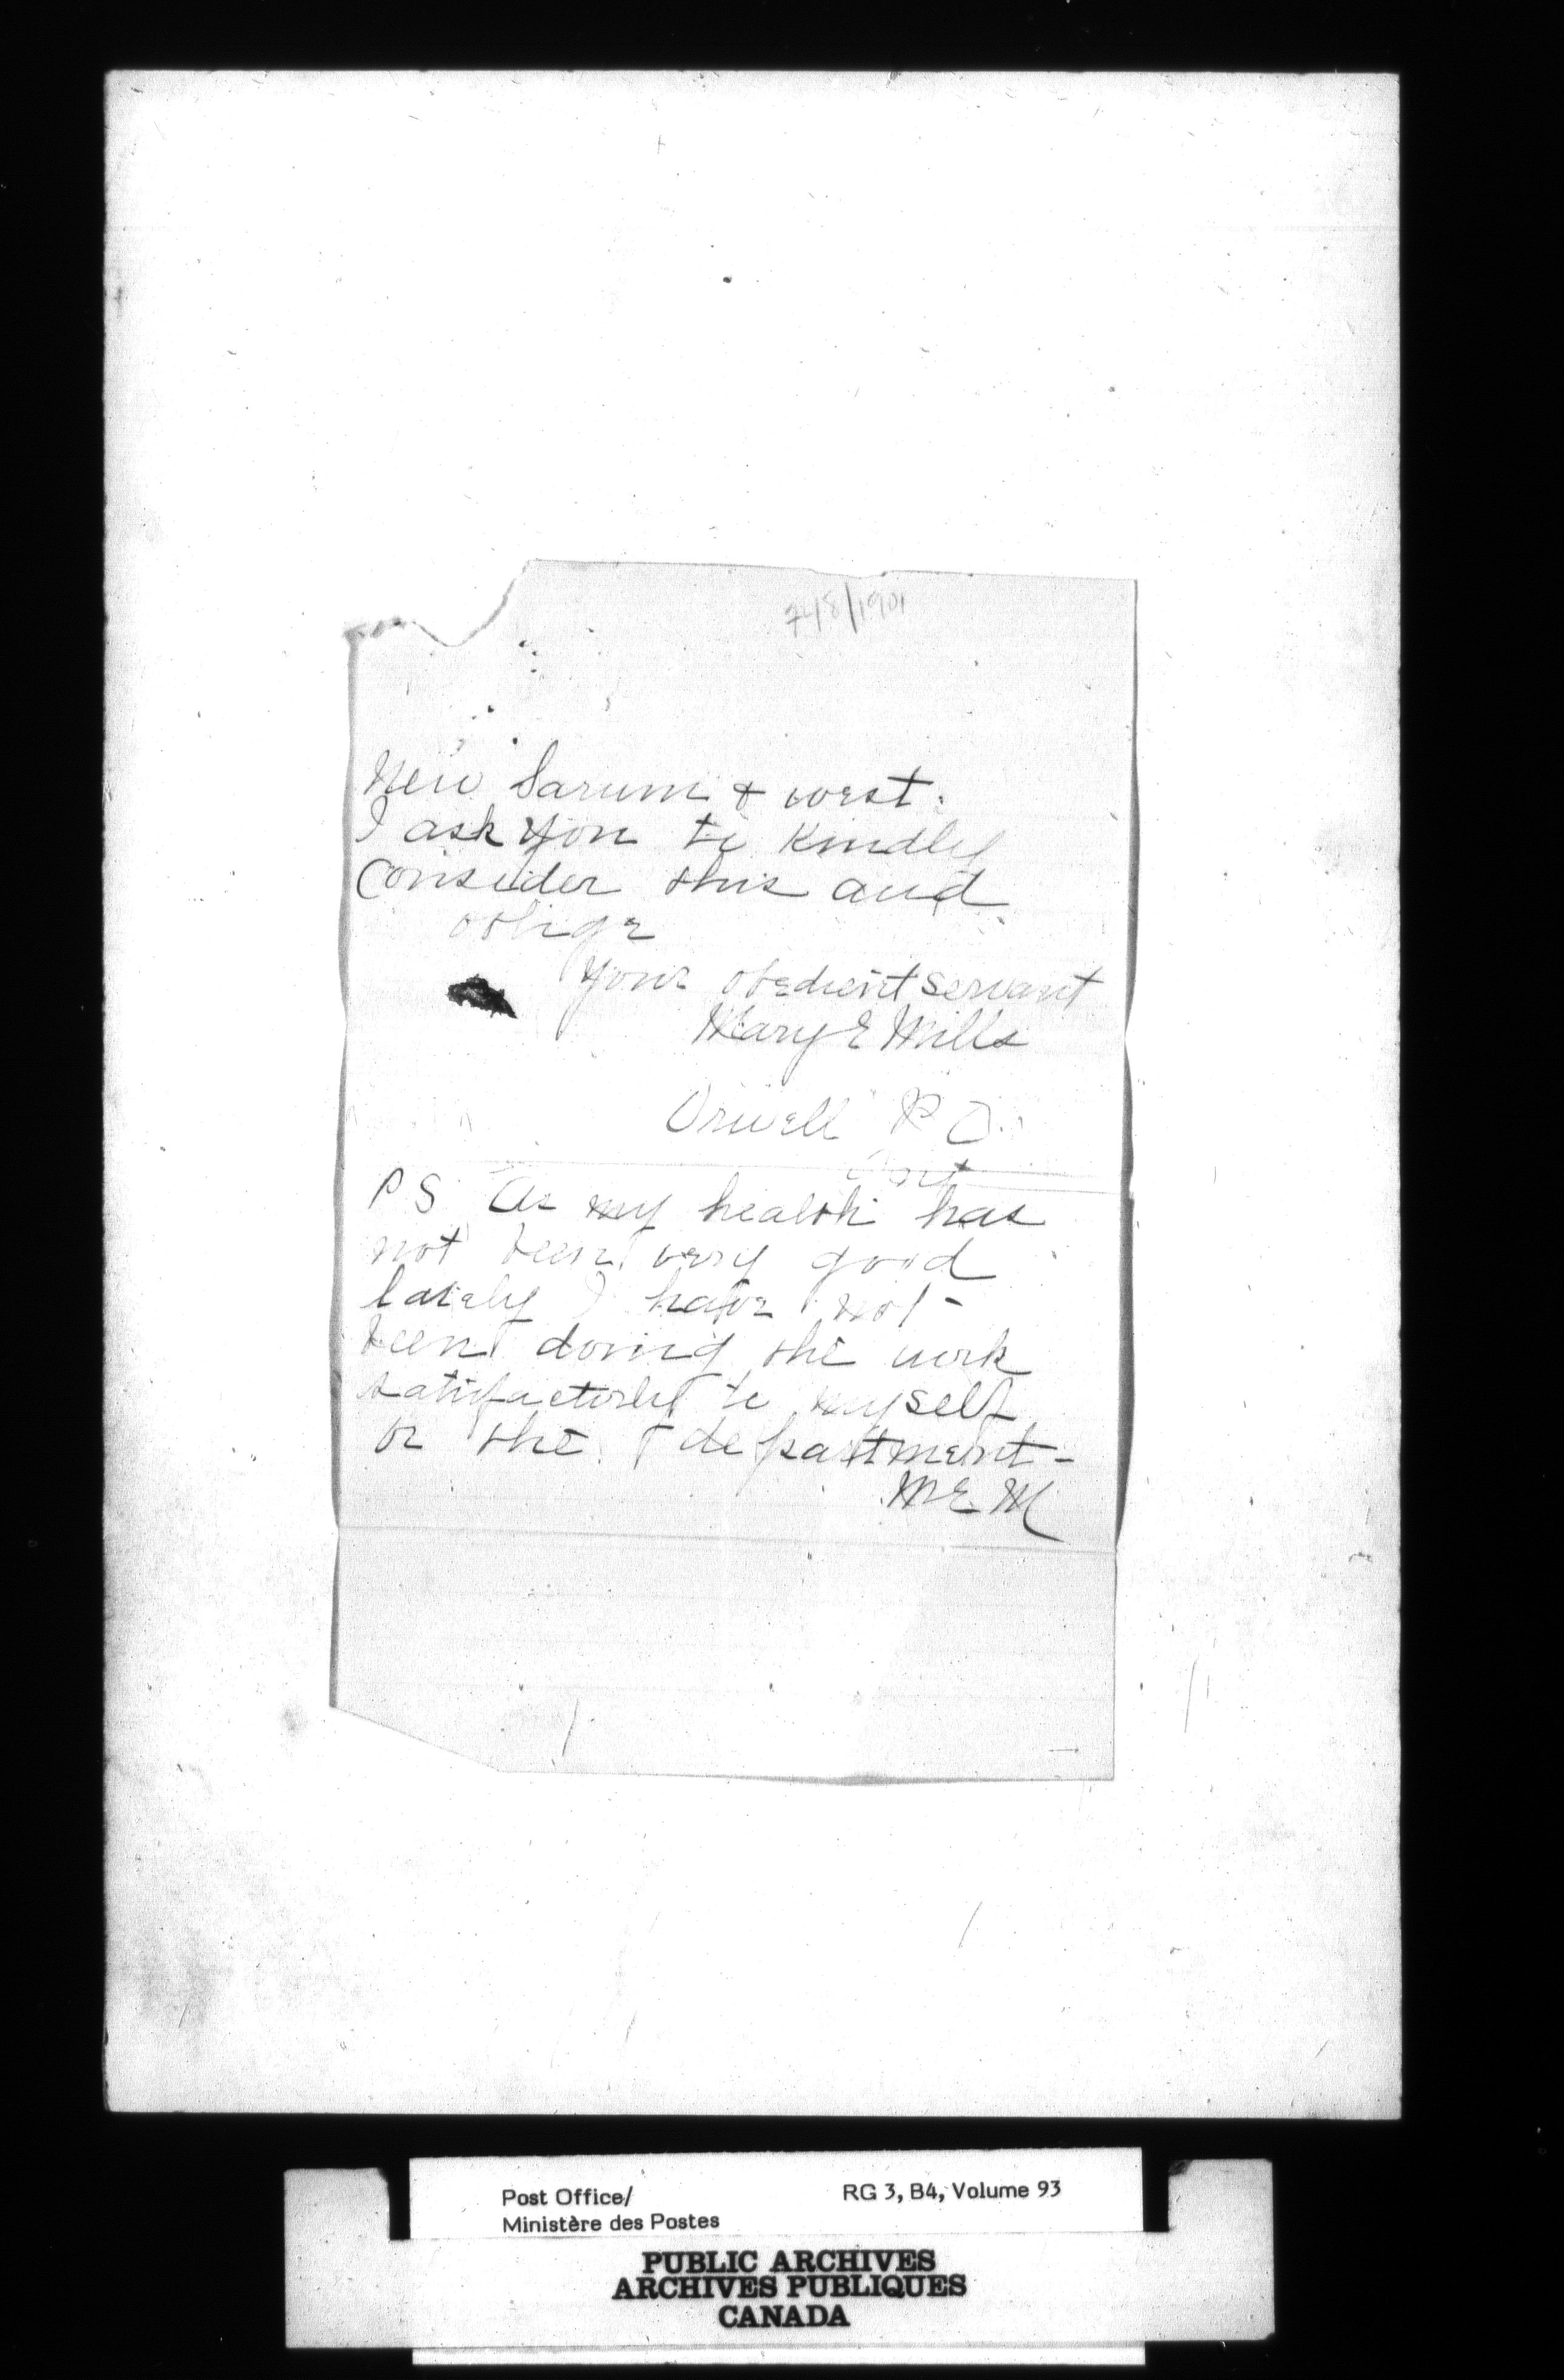 748/1901
New Sarum & west.
I ask you to kindly
consider this and
oblige
Your obedient servant
Mary E Mills
Orwell P O.
Ont
P S As my health has
not been very good
lately I have not-
been doing the work
satisfactorly to myself
or the department-
M E M
Post Office/
Ministère des Postes
RG 3, B4, Volume 93
PUBLIC ARCHIVES
ARCHIVES PUBLIQUES
CANADA